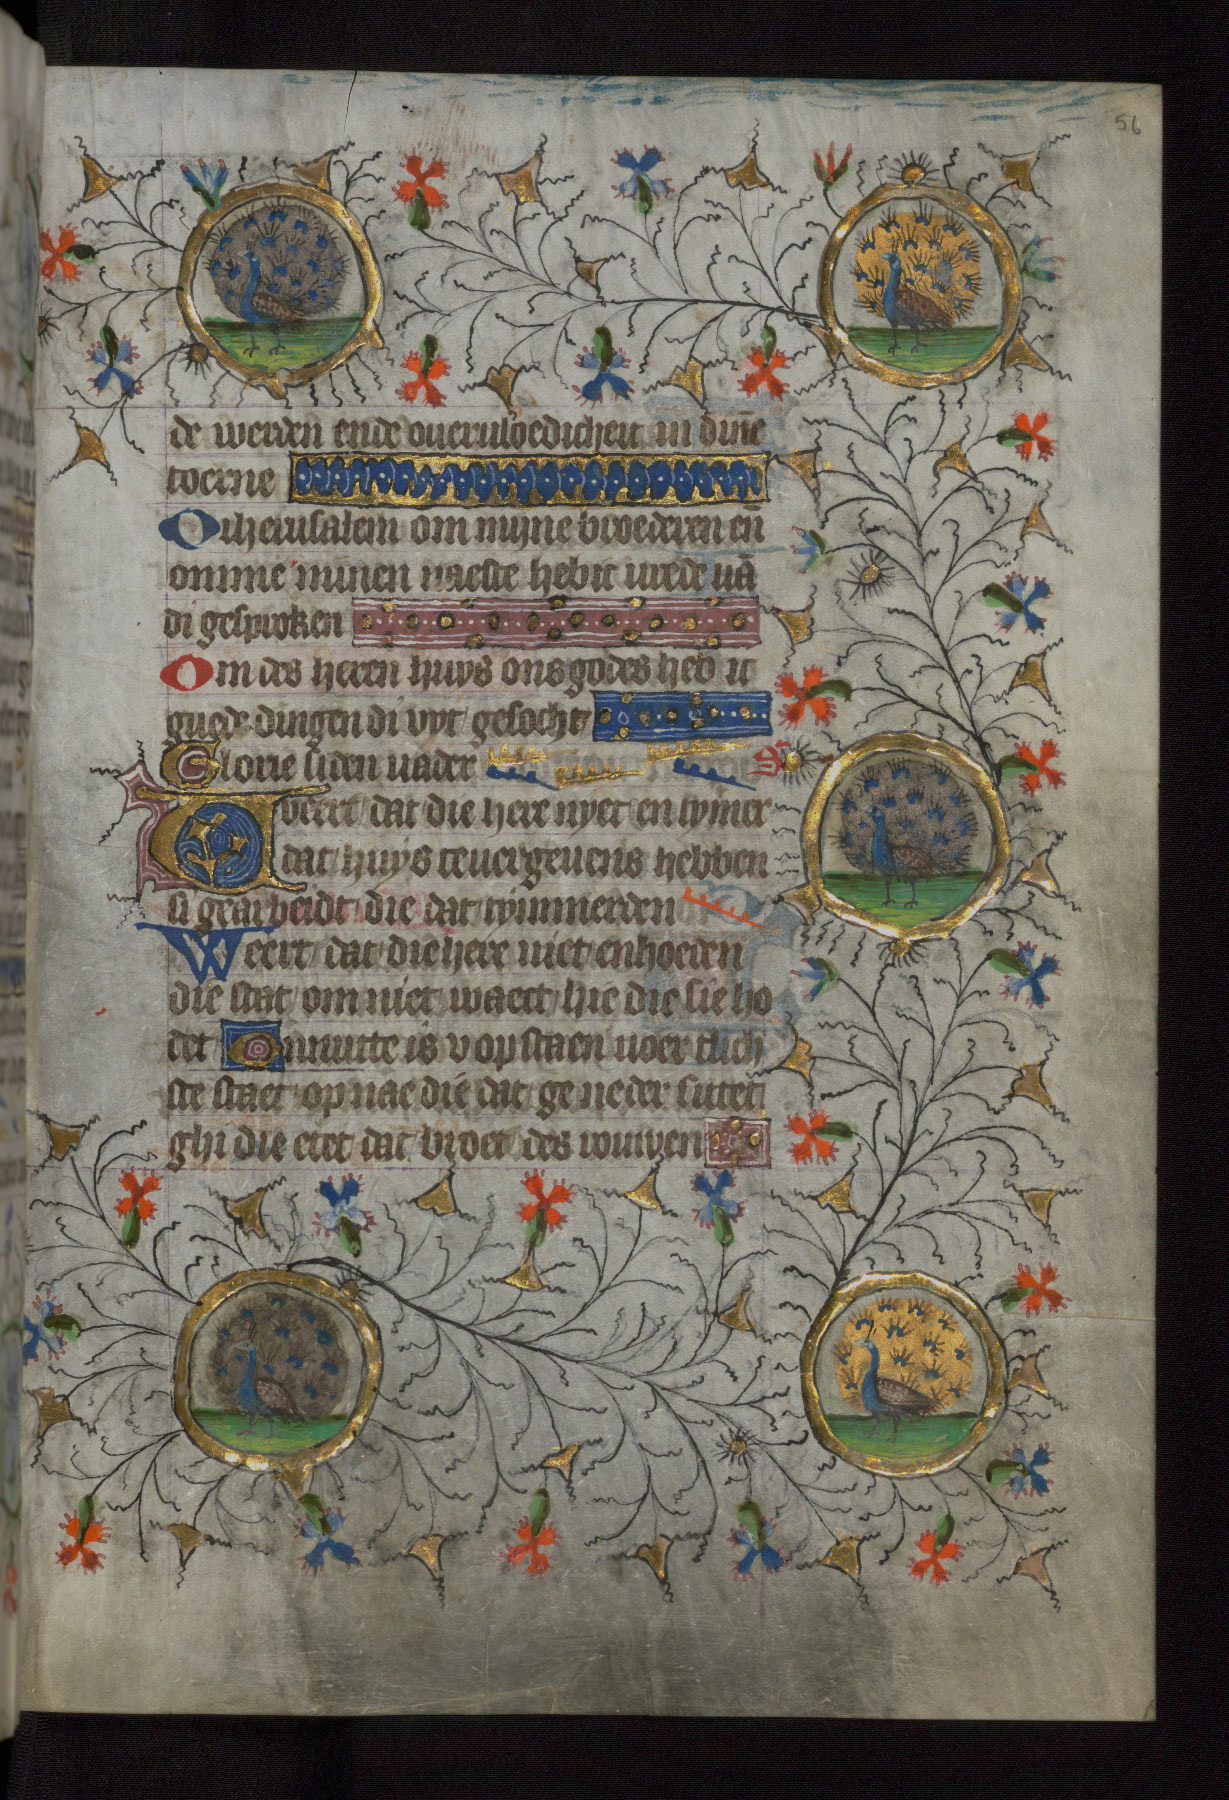 56
de werden ende overuloedicheit in dine
toerne
O iherusalem om myne broederen en̄
omme minen naeste hebic vrede uā
di gesproken
Om des heren huys ons godes heb ic
guede dingen di vyt gesocht
Glorie si den uader
Weert dat die here nyet en tymer
dat huys te uergeuens hebben
si gearbeidt die dat tymmerden
Weert dat die here niet en hoeden
die stat om niet waect hie die sie ho
det Onnutte is v op staen uoer tlich
ste staet op nae die dat ge neder sittet
ghi die etet dat broet des rouwen